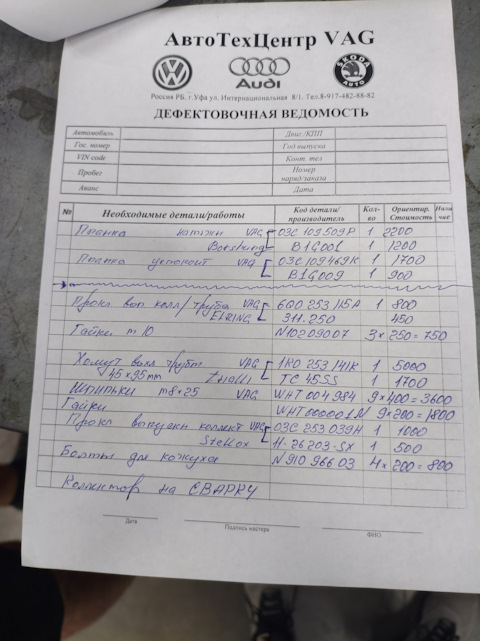 АвтоТехЦентр VAG
Audi
SKODA
AUTO
Россия РБ. г.Уфа ул. Интернациональная 8/1. Тел.8-917-482-88-82
ДЕФЕКТОВОЧНАЯ ВЕДОМОСТЬ
Автомобиль Двиг./КПП
Гос. номер Год выпуска
VIN code Конт. тел
Пробег Номер наряд/заказа
Аванс Дата
№ Необходимые детали/работы Код детали/производитель Кол-во Ориентир. Стоимость Наличие
Планка натяжн VAG 03C 109 509P 1 2200
Borsehung B1G001 1 1200
Планка успокоит VAG 03C 109 469K 1 1700
B1G009 1 900
Прокл вып колл/труба VAG 6Q0 253 115A 1 800
ELRING 311.250 450
Гайки m10 N10209007 3×250=750
Хомут колл труба VAG 1K0 253 141K 1 5000
45×95mm TC 45SS 1 1700
Шпильки m8×25 VAG WHT 004 984 9×400=3600
Гайки WHT 000001N 9×200=1800
Прокл выпускн коллект VAG 03C 253 039H 1 1000
Stellox 11-26203-SX 1 500
Болты для кожуха N 910 966 03 4×200=800
Коллектор на СВАРКУ
Дата Подпись мастера ФИО